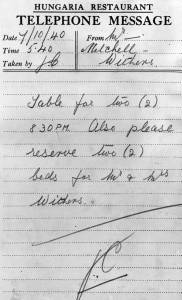 HUNGARIA RESTAURANT
TELEPHONE MESSAGE
Date 7/10/40 From Mr
Time 5.40 Mitchell-
Taken by JC Withers.
Table for two (2)
8 30 P.M. Also please
reserve two (2)
beds for Mr & Mrs
Withers.
JC